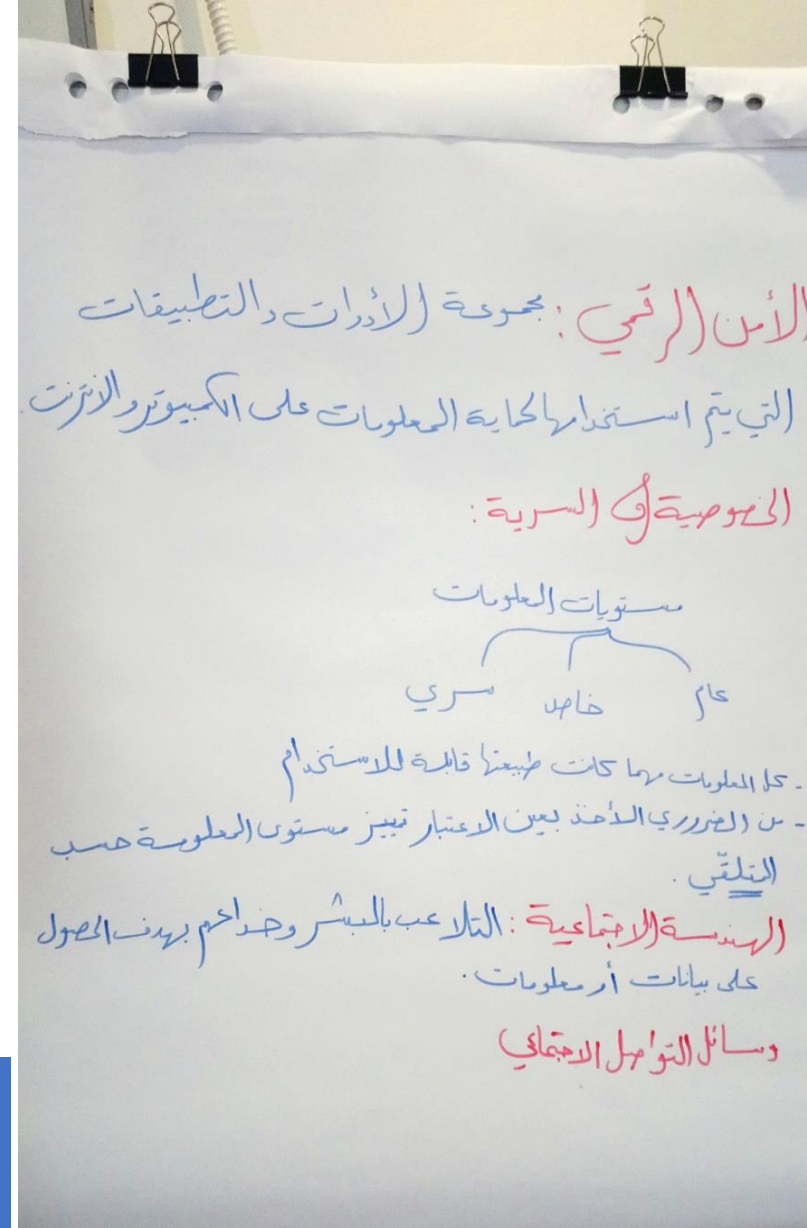 الأمن الرقمي : مجموعة الأدوات والتطبيقات
التي يتم استخدامها لحماية المعلومات على الكمبيوتر والانترنت.
الخصوصية و السرية :
مستويات المعلومات
عام خاص سري
- كل المعلومات مهما كانت طبيعتها قابلة للاستخدام
- من الضروري الأخذ بعين الاعتبار تمييز مستوى المعلومة حسب
المتلقّي .
الهندسة الاجتماعية : التلاعب بالبشر وخداعهم بهدف الحصول
على بيانات أو معلومات .
وسائل التواصل الاجتماعي